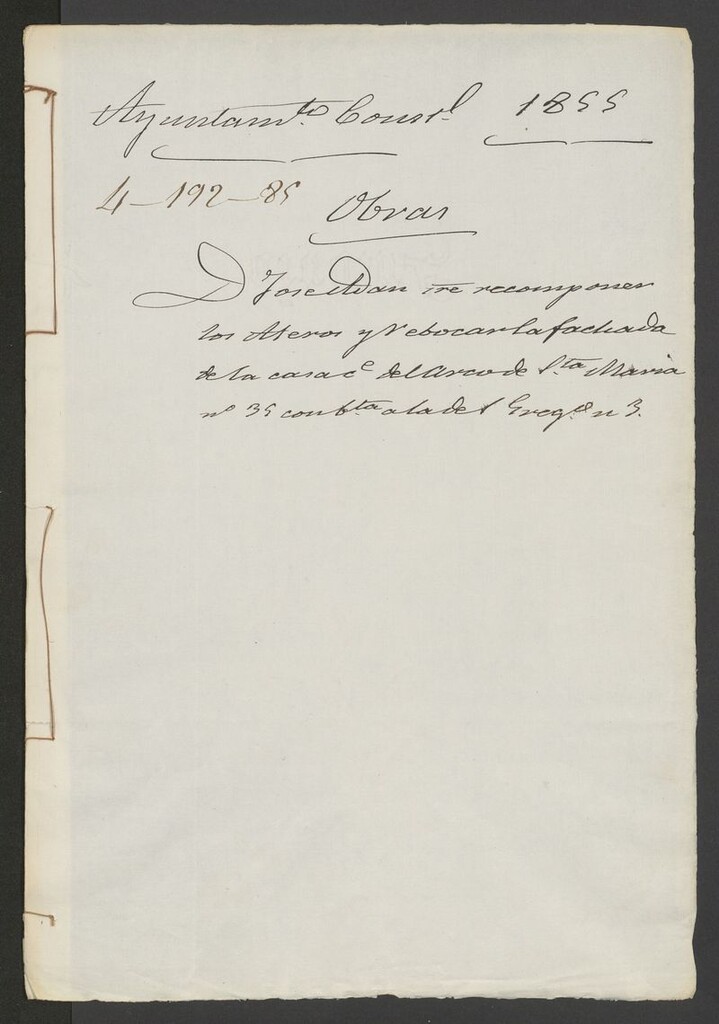 Ayuntamto. Constl. 1855
4-192-85
Obras
D Jose Adan sre recomponer
los Aleros y Rebocar la fachada
de la casa ce del Arco de Sta Maria
no 35 con bta a la de S Grego n 3.